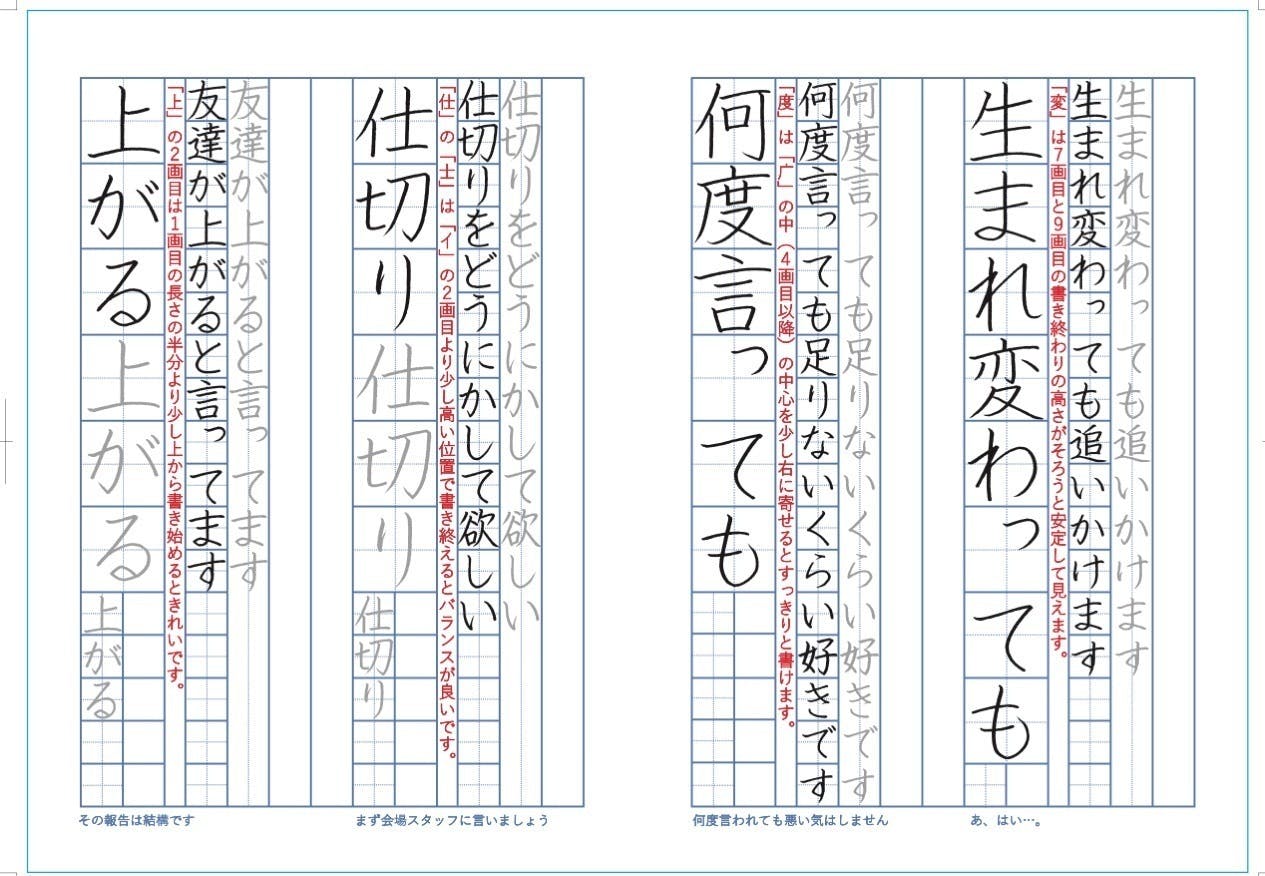 生まれ変わっても追いかけます
生まれ変わっても追いかけます
「変」は7画目と9画目の書き終わりの高さがそろうと安定して見えます。
生まれ変わっても
あ、はい…。
何度言っても足りないくらい好きです
何度言っても足りないくらい好きです
「度」は「广」の中（4画目以降）の中心を少し右に寄せるとすっきりと書けます。
何度言っても
何度言われても悪い気はしません
仕切りをどうにかして欲しい
仕切りをどうにかして欲しい
「仕」の「士」は「イ」の2画目より少し高い位置で書き終えるとバランスが良いです。
仕切り仕切り仕切り
まず会場スタッフに言いましょう
友達が上がると言ってます
友達が上がると言ってます
「上」の2画目は1画目の長さの半分より少し上から書き始めるときれいです。
上がる上がる上がる
その報告は結構です